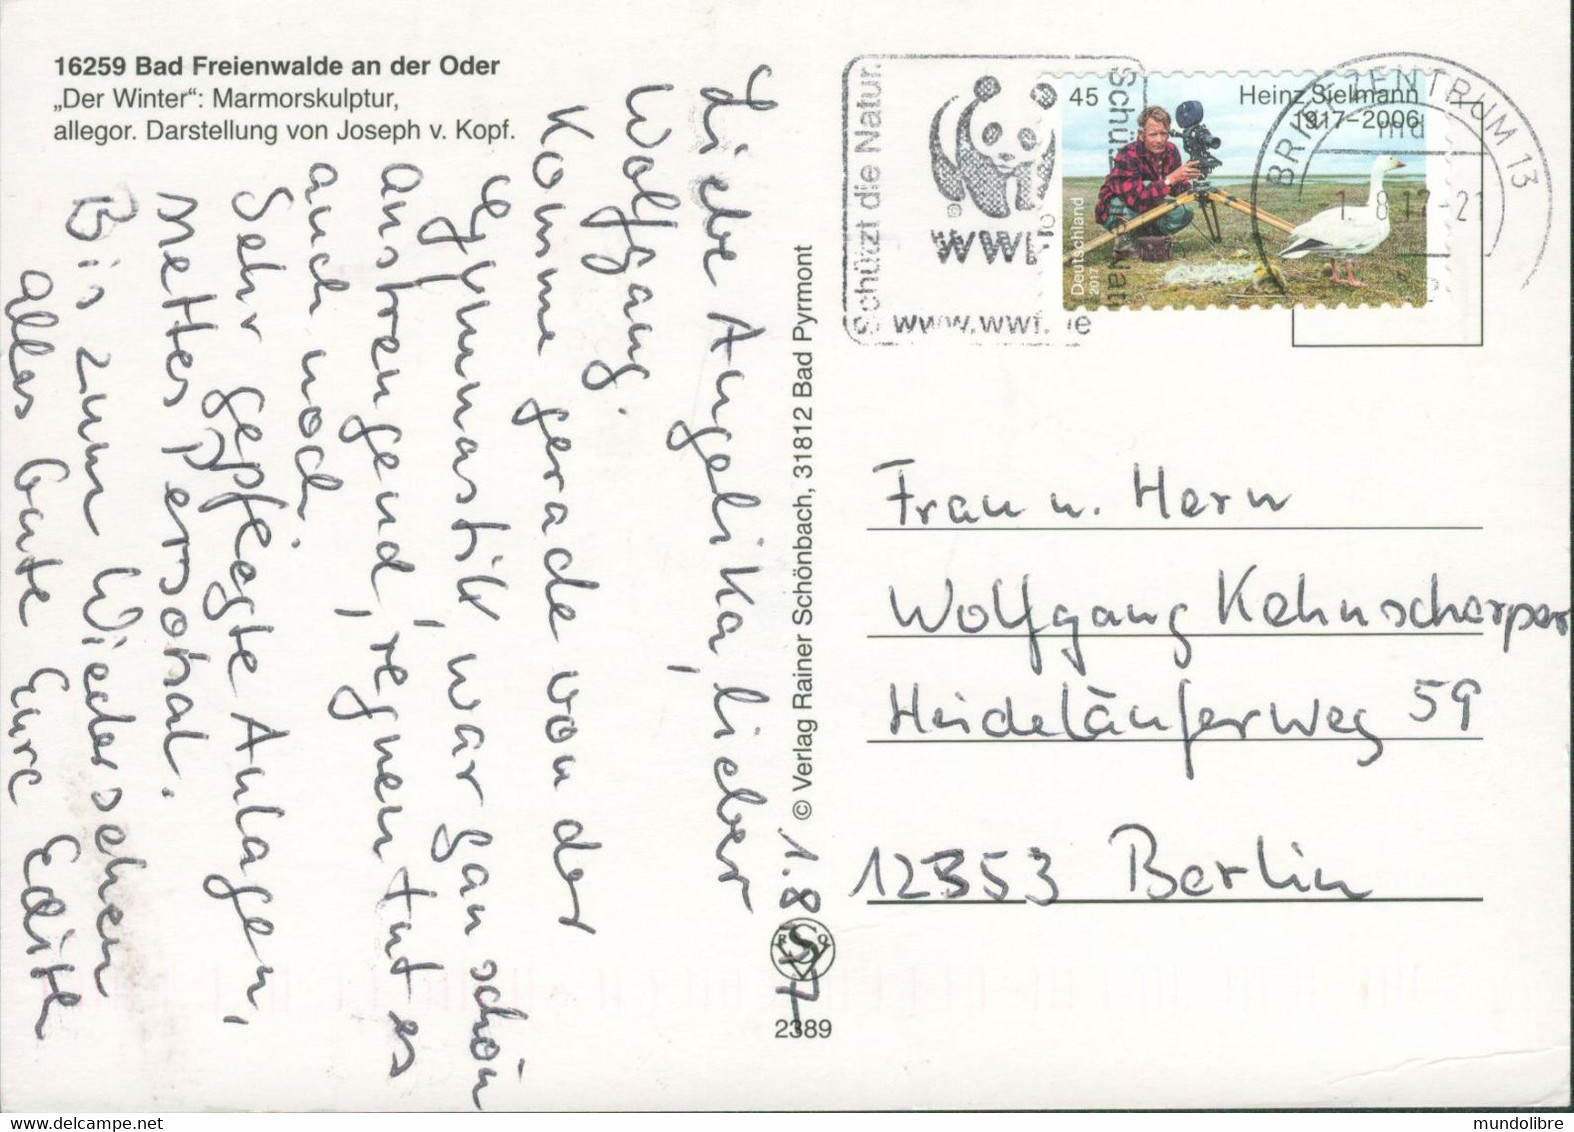 16259 Bad Freienwalde an der Oder
„Der Winter“: Marmorskulptur,
allegor. Darstellung von Joseph v. Kopf.
1.8.17
Liebe Angelika, lieber
Wolfgang.
Komme gerade von der
Gymnastik, war ganz schön
anstrengend, regnen tut es
auch noch.
Sehr gepflegte Anlagen,
nettes Personal.
Bis zum Wiedersehen
alles Gute Eure Edith
© Verlag Rainer Schönbach, 31812 Bad Pyrmont
2389
Schützt die Natur.
WWF
www.wwf.de
45
Heinz Sielmann
1917–2006
Deutschland
2017
BRIEFZENTRUM 13
1.8.17-21
Frau u. Herrn
Wolfgang Kehnscherper
Heideläuferweg 59
12353 Berlin
mundolibre